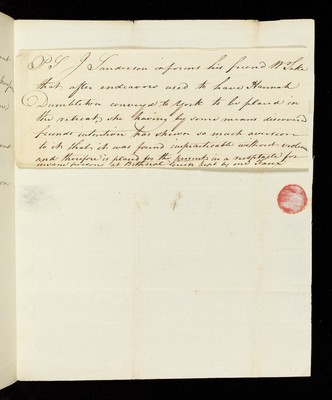 P.S. J Sanderson informs his friend Wm Tuke
that, after endeavors used to have Hannah
Dumbleton convey'd to York to be placed in
the retreat, she having by some means discovered
friends intention has shewn so much aversion
to it that it was found impracticable without violence
and therefore is placed for the present in a receptacle for
insane persons at Bethnal Green kept by one